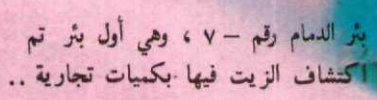 بئر الدمام رقم – ٧ ، وهي أول بئر تم
اكتشاف الزيت فيها بكميات تجارية ..